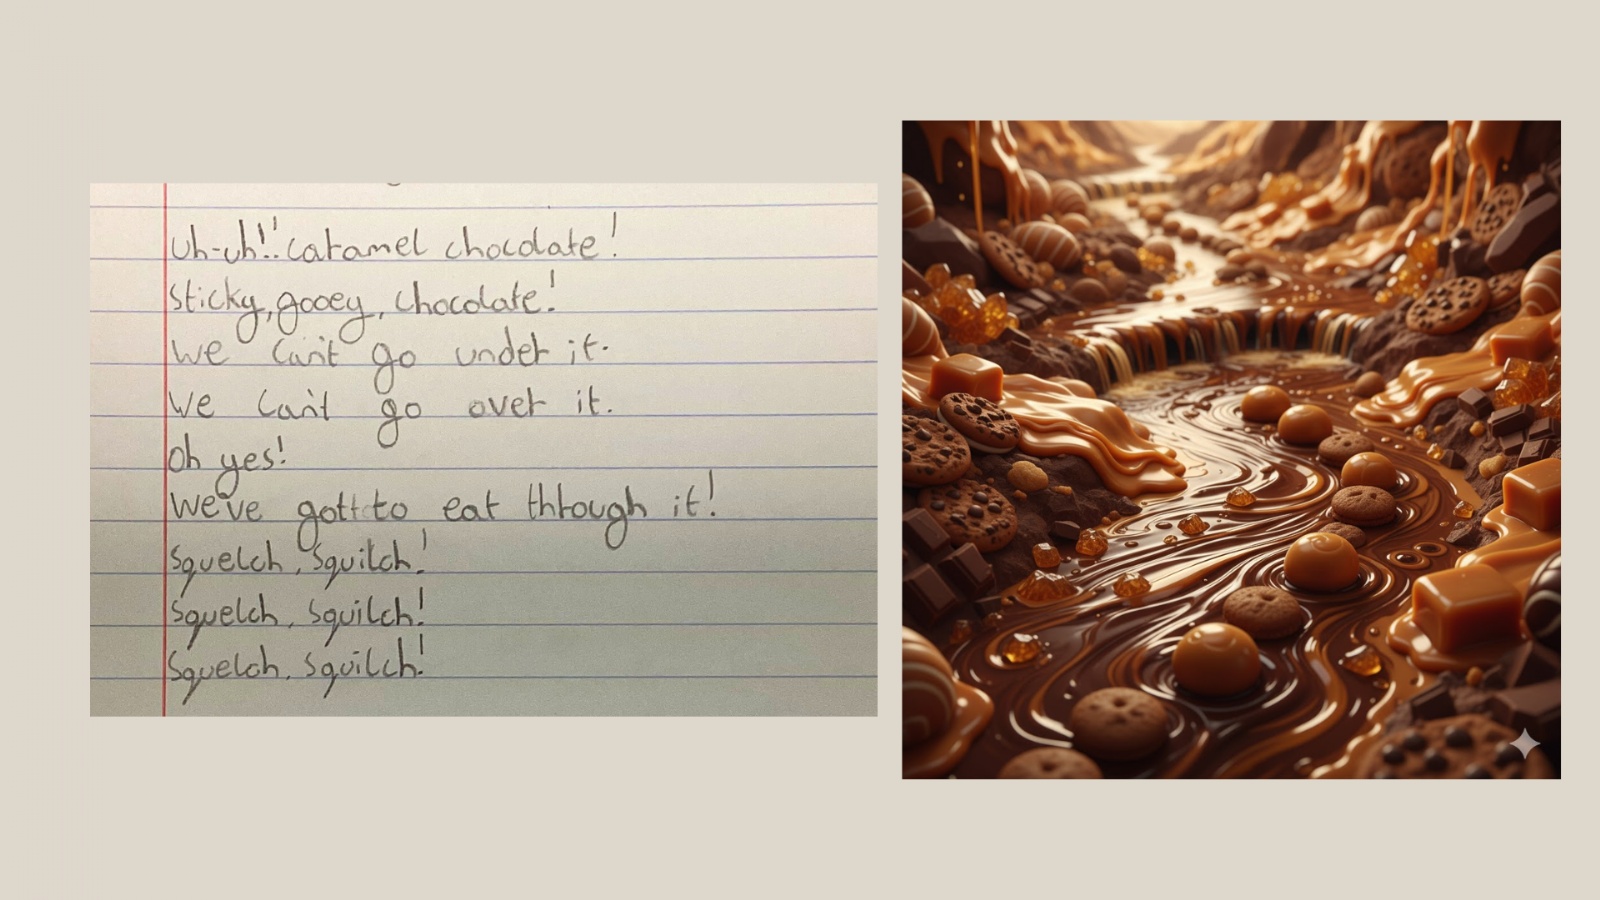 Uh-uh!! Caramel chocolate!
Sticky, gooey, chocolate!
We can't go under it.
We can't go over it.
Oh yes!
We've gott to eat through it!
Squelch, squilch!
Squelch, squilch!
Squelch, squilch!